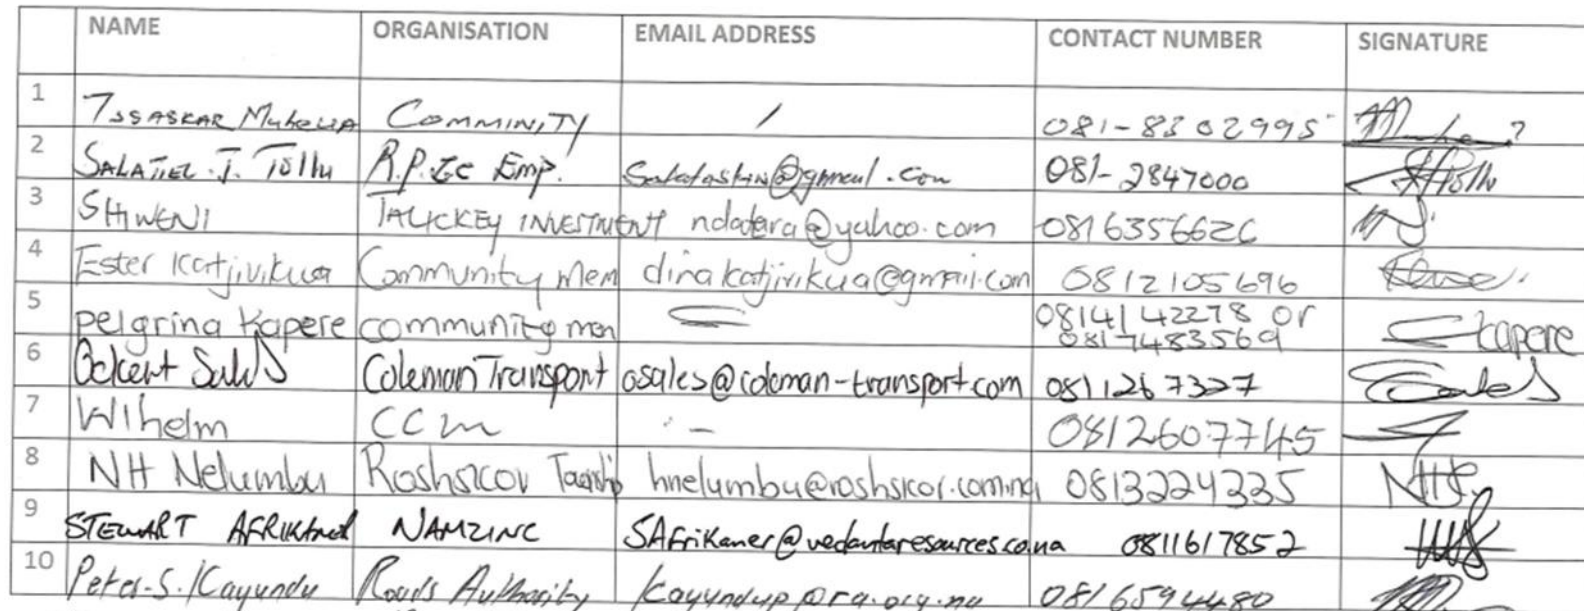 NAME ORGANISATION EMAIL ADDRESS CONTACT NUMBER SIGNATURE
1 COMMINITY / 081-8302995
2 SALATIEL .J. R.P. Emp. 081-2847000
3 SHIWENI INVESTMENT ndadara@yahoo.com 0816356626
4 Ester Katjivikua Community Mem dinakatjivikua@gmail.com 0812105696
5 pelgrina Kapere community mem 0814142278 or kapere
0817483569
6 Ockert Sales Coleman Transport osales@coleman-transport.com 0811267327
7 Wlhelm CCM - 0812607745
8 NH Nelumbu hnelumbu@roshskor.com.na 0813224335
9 STEWART AFRIKANER NAMZINC SAfrikaner@vedantaresources.co.na 0811617852
10 Peter-S. Kayundu Roads Authority kayundup@ra.org.na 0816594480